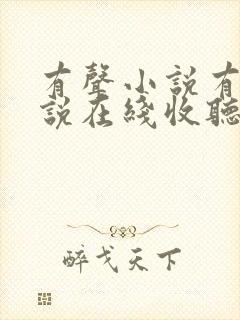 有聲小說有
說在綫收聽
醉戈天下